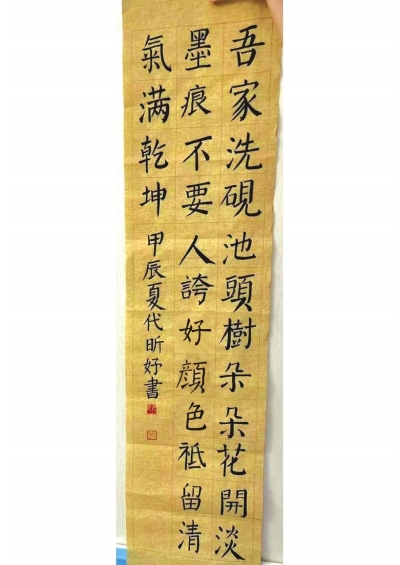 吾家洗硯池頭樹朵朵花開淡
墨痕不要人誇好顔色祗留清
氣满乾坤
甲辰夏代昕妤書